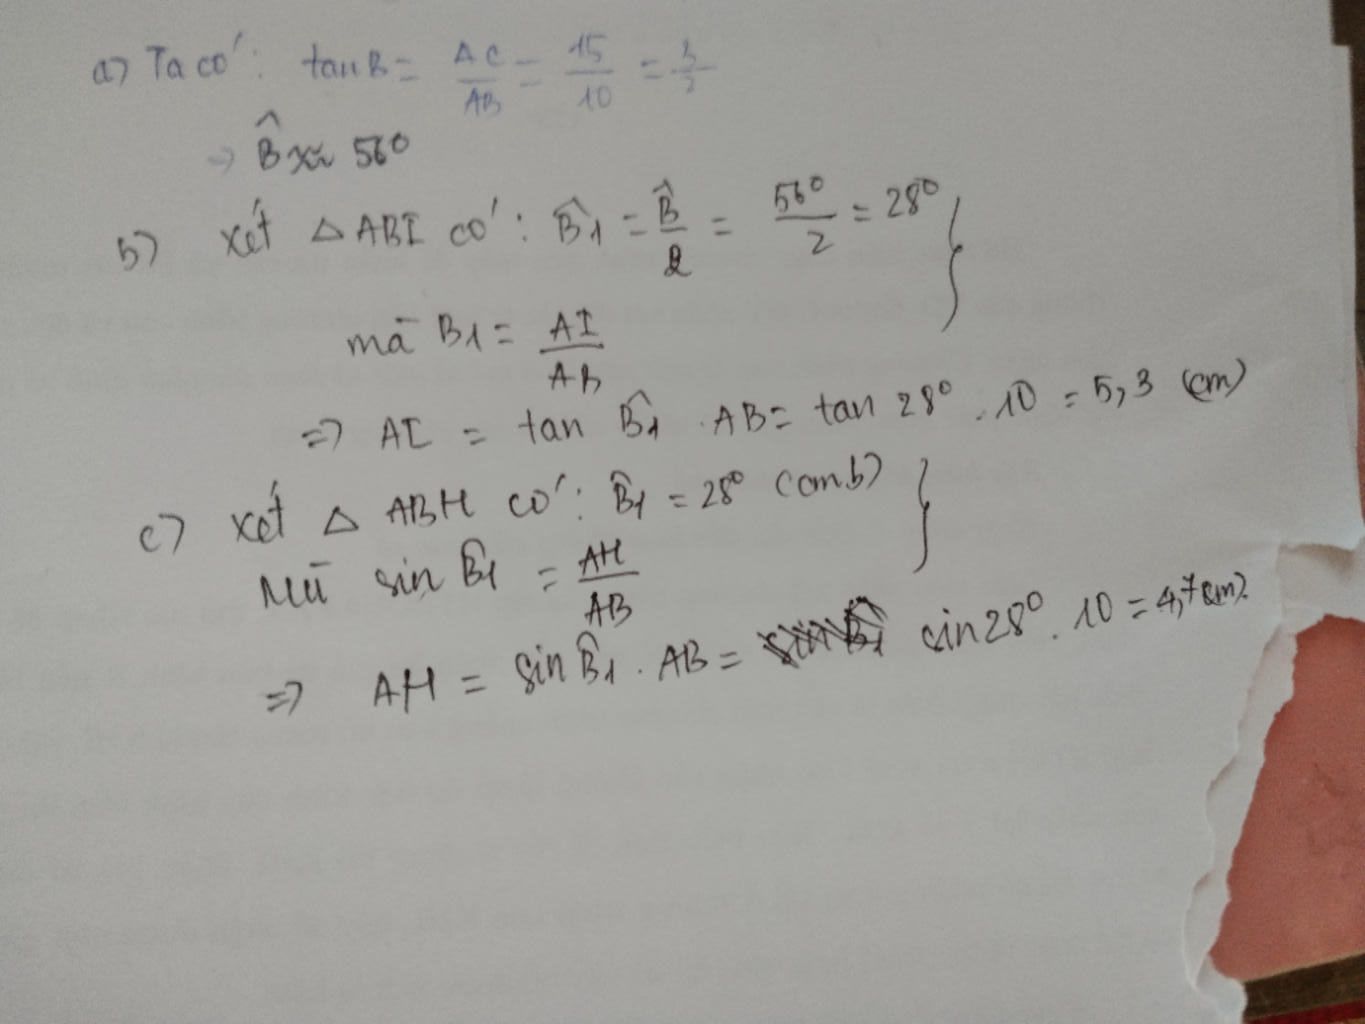 a) Ta có: tan B = AC/AB = 15/10 = 3/2
=> B̂ ≈ 56°
b) xét △ ABI có: B̂1 = B̂/2 = 56°/2 = 28° }
mà B1 = AI/AB
=> AI = tan B̂1 . AB = tan 28° . 10 = 5,3 (cm)
c) xét △ ABH có: B̂1 = 28° (cmb) }
Mà sin B̂1 = AH/AB
=> AH = sin B̂1 . AB = sin 28° . 10 = 4,7 (cm).